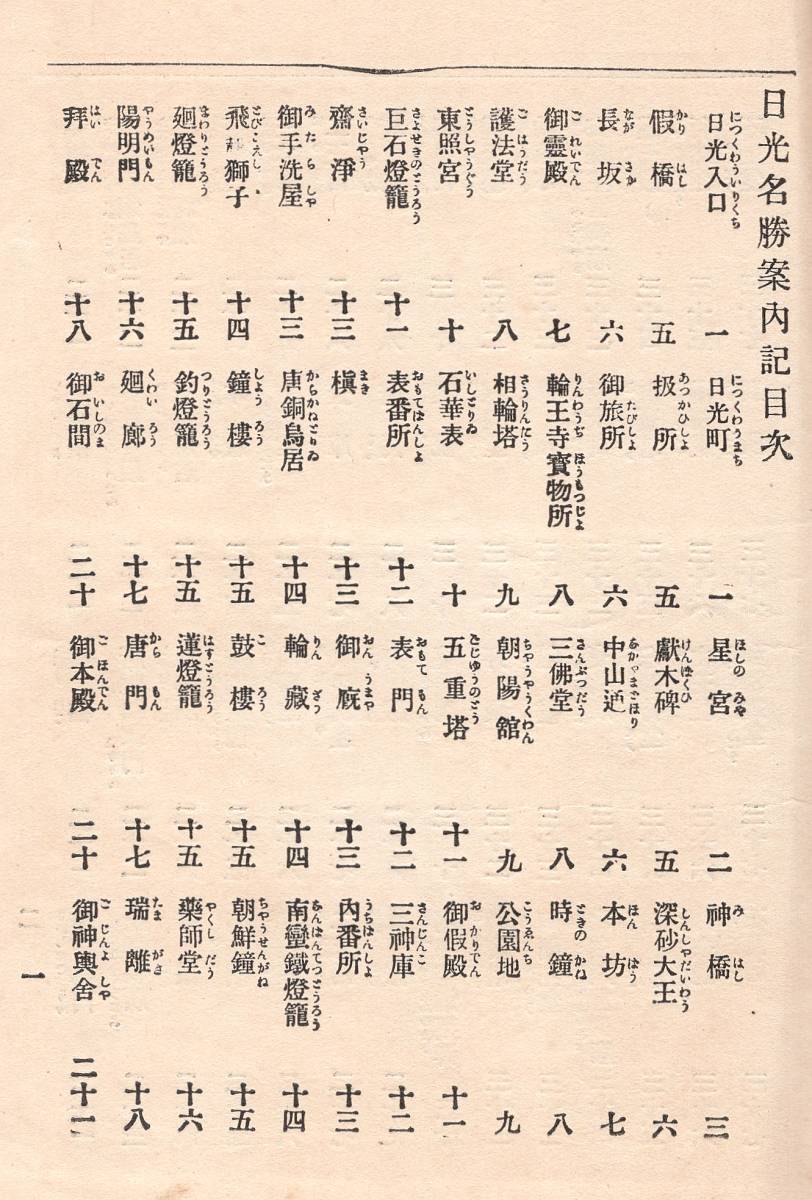 日光名勝案内記目次
日光入口 一 日光町 一 星宮 二 神橋 三
假橋 五 扱所 五 獻木碑 五 深砂大王 六
長坂 六 御旅所 六 中山通 六 本坊 七
御靈殿 七 輪王寺寶物所 八 三佛堂 八 時鐘 八
護法堂 八 相輪塔 九 朝陽舘 九 公園地 九
東照宮 十 石華表 十 五重塔 十一 御假殿 十一
巨石燈籠 十一 表番所 十二 表門 十二 三神庫 十二
齋淨 十三 槇 十三 御廐 十三 内番所 十三
御手洗屋 十三 唐銅鳥居 十四 輪藏 十四 南蠻鐵燈籠 十四
飛獅子 十四 鐘樓 十五 鼓樓 十五 朝鮮鐘 十五
廻燈籠 十五 釣燈籠 十五 蓮燈籠 十五 藥師堂 十六
陽明門 十六 廻廊 十七 唐門 十七 瑞離 十八
拜殿 十八 御石間 二十 御本殿 二十 御神輿舍 二十一
一